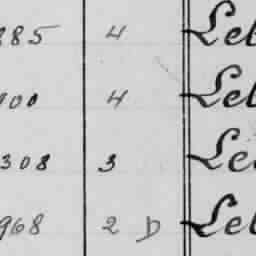 885 4 Lel
100 4 Lel
308 3 Lee
968 2 D Lel